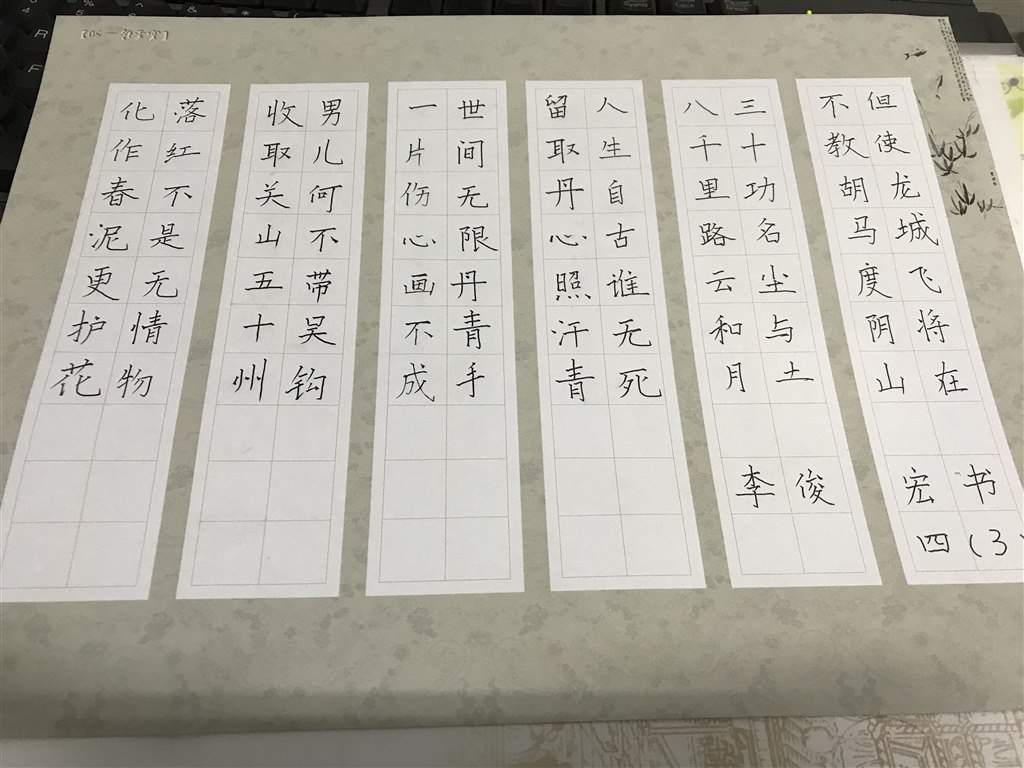 但使龙城飞将在
不教胡马度阴山
三十功名尘与土
八千里路云和月
人生自古谁无死
留取丹心照汗青
世间无限丹青手
一片伤心画不成
男儿何不带吴钩
收取关山五十州
落红不是无情物
化作春泥更护花
李俊宏书
四(3)